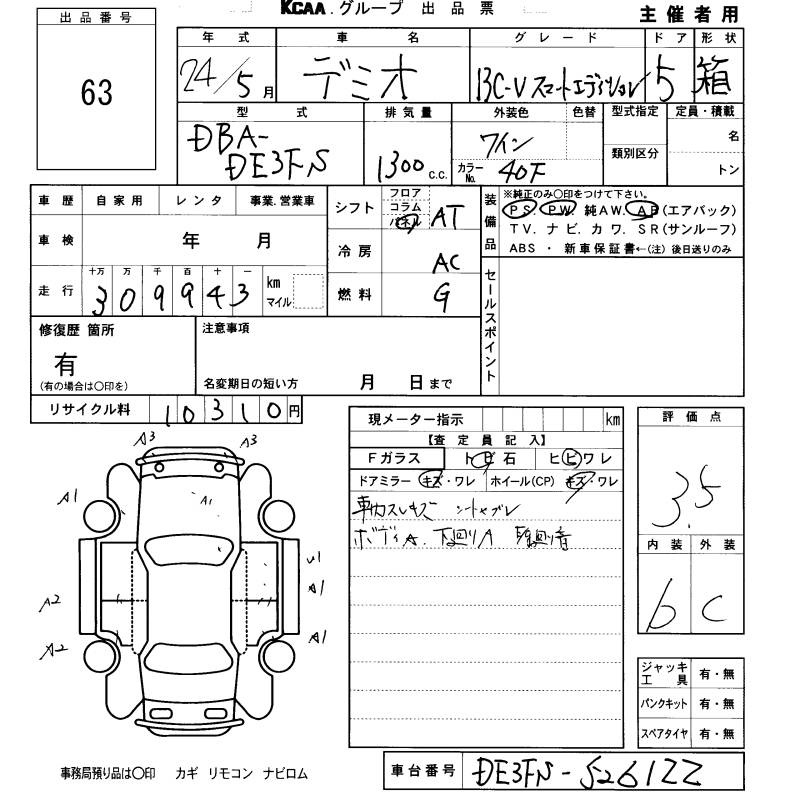 出品番号
63
KCAA.グループ 出品票
主催者用
年式 車名 グレード ドア 形状
24/5月 デミオ 13C-V スマートエディション 5 箱
型式 排気量 外装色 色替 型式指定 定員・積載
DBA-
DE3FS 1300 c.c. ワイン 類別区分 名
カラーNo. 40F トン
車歴 自家用 レンタ 事業.営業車
車検 年 月
走行 十万 万 千 百 十 一
309943 km マイル
シフト フロア コラム パネル AT
冷房 AC
燃料 G
装備品 ※純正のみ〇印をつけて下さい。
PS. PW. 純AW. AB(エアバック)
TV. ナビ. カワ. SR(サンルーフ)
ABS ・ 新車保証書←(注) 後日送りのみ
セールスポイント
修復歴 箇所
有
(有の場合は〇印を)
注意事項
名変期日の短い方 月 日まで
リサイクル料 10310円
現メーター指示 km
【査定員記入】
Fガラス ト 石 ヒビワレ
ドアミラー キズ・ワレ ホイール(CP) キズ・ワレ
車内スレキズ シートヤブレ
ボディA. 下廻りA
評価点
3.5
内装 外装
b C
A3 A3
A1 A1
U1
A1
A2
A2 A1
ジャッキ工具 有・無
パンクキット 有・無
スペアタイヤ 有・無
事務局預り品は〇印 カギ リモコン ナビロム
車台番号 DE3FS-526122